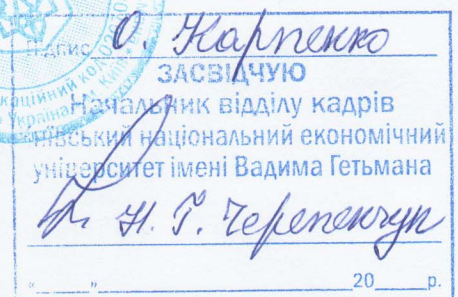 Підпис О. Карпенко
ЗАСВІДЧУЮ
Начальник відділу кадрів
національний економічний
університет імені Вадима Гетьмана
Н. Г. Черепенчук
"____" ____________ 20____р.